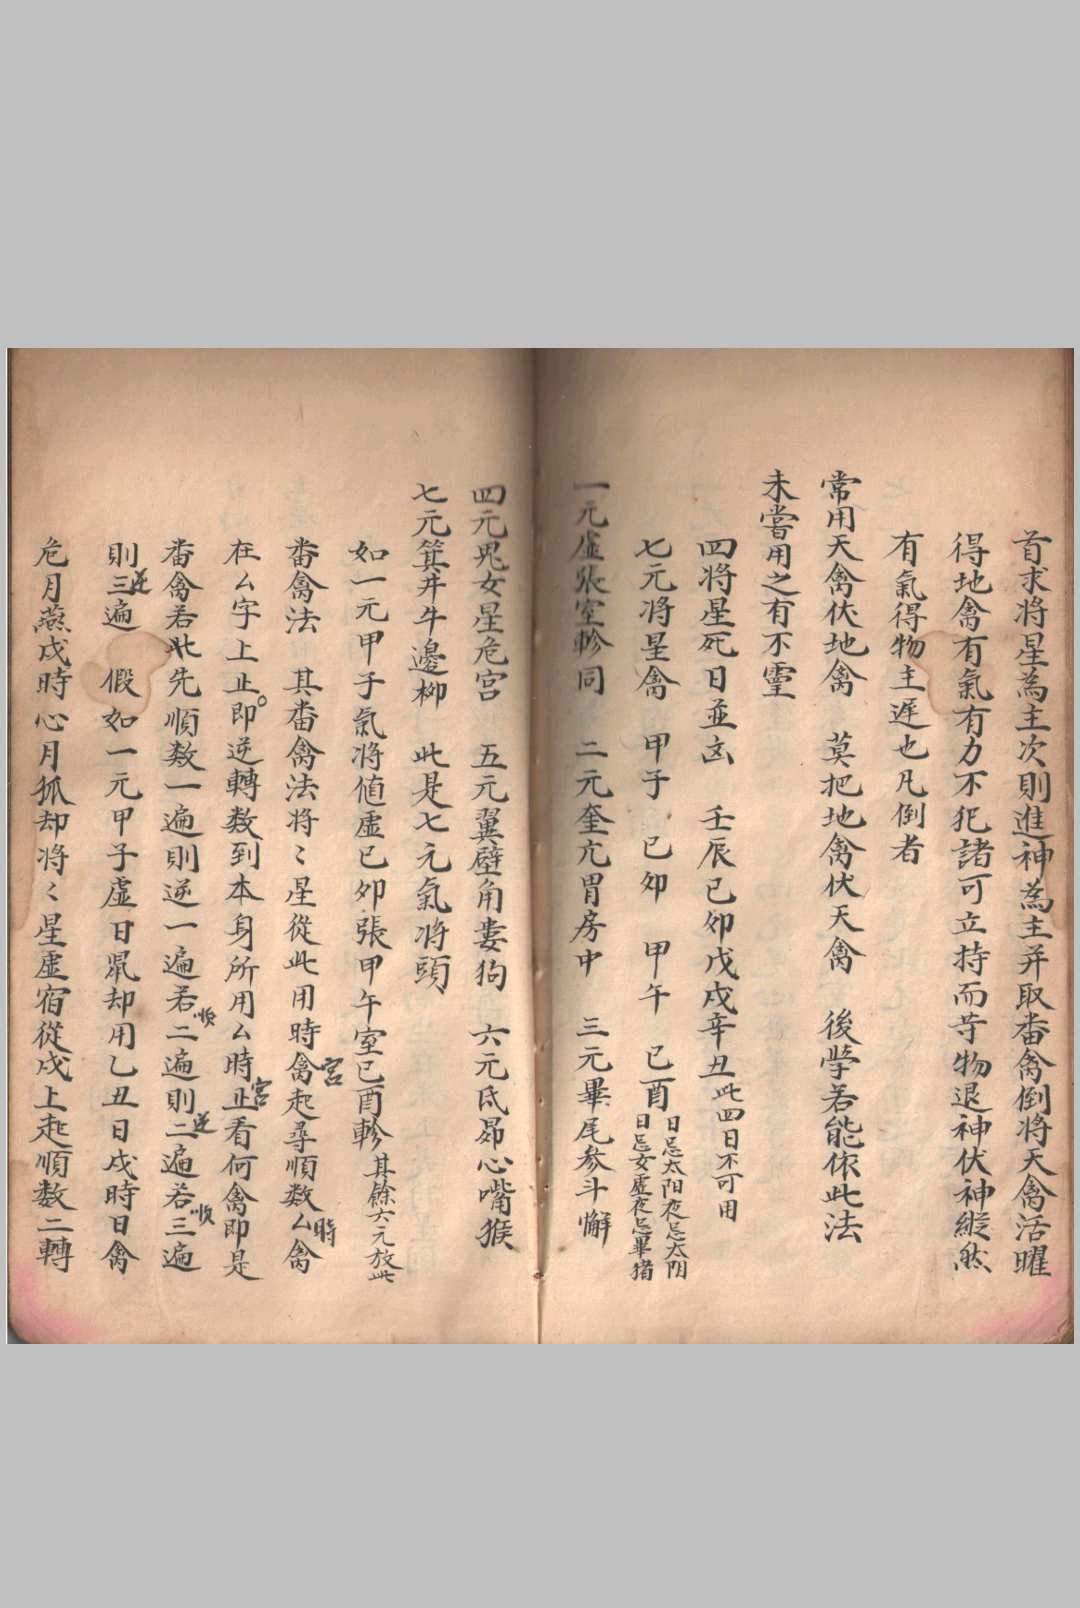 首求将星為主次則進神為主并取畨禽倒将天禽活曜
得地禽有氣有力不犯諸可立持而等物退神伏神縱然
有氣得物主遲也凡倒者
常用天禽伏地禽　莫把地禽伏天禽　後學若能依此法
未嘗用之有不靈
四将星死日並凶　壬辰已夘戊戌辛丑此四日不可用
七元将星禽　甲子　已夘　甲午　已酉日忌太阳夜忌太阴
日忌女虚夜忌畢猪
一元虚張室軫同　二元奎亢胃房中　三元畢尾参斗懈
四元鬼女星危宫　五元翼壁角婁狗　六元氐昴心嘴猴
七元箕井牛邊柳　此是七元氣将頭
如一元甲子氣将值虚已夘張甲午室已酉軫其餘六元放此
畨禽法　其畨禽法将〻星從此用時禽宮起尋順数厶時禽
在厶字上止。即逆轉数到本身所用厶時宮止看何禽即是
畨禽若此先順数一遍則逆一遍若順二遍則逆二遍若順三遍
則逆三遍　假如一元甲子虚日鼠却用乙丑日戌時日禽
危月燕戌時心月狐却将〻星虚宿從戌上起順数二轉